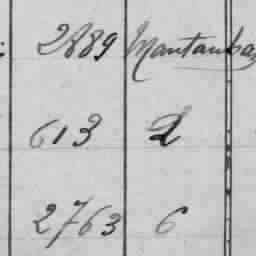 2889 Mantauban
613 2
2763 6